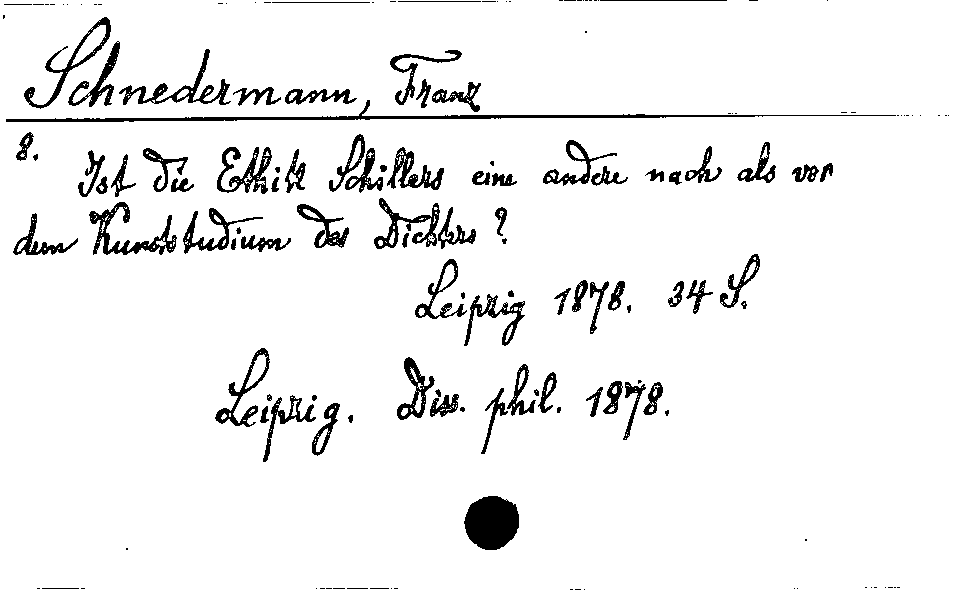 Schnedermann, Franz
8.
Ist die Ethik Schillers eine andere nach als vor
dem Kunststudium des Dichters?
Leipzig 1878. 34 S.
Leipzig. Diss. phil. 1878.